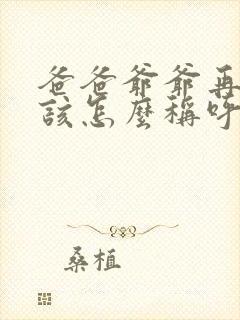 爸爸爺爺再
該怎麼稱呼
桑植